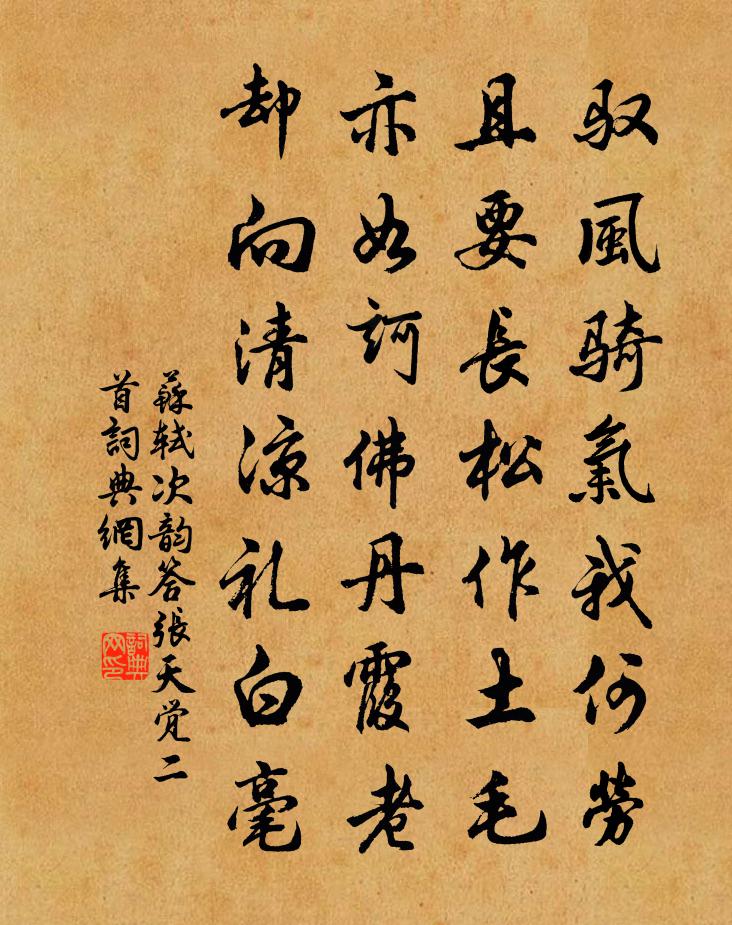 驭風騎氣我何勞
且要長松作土毛
亦如訶佛丹霞老
却向清凉礼白毫
蘇軾次韵答張天觉二
首詞典網集
詞典
网印